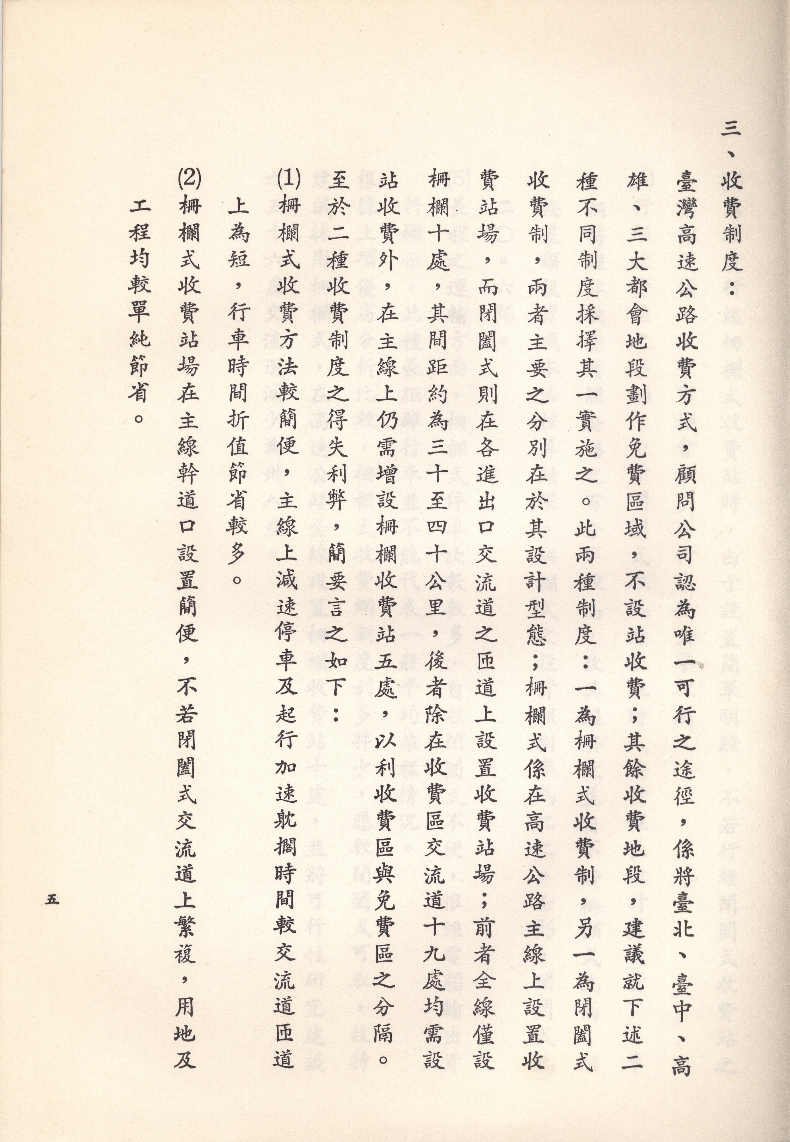 三、收費制度：
臺灣高速公路收費方式，顧問公司認為唯一可行之途徑，係將臺北、臺中、高
雄、三大都會地段劃作免費區域，不設站收費；其餘收費地段，建議就下述二
種不同制度採擇其一實施之。此兩種制度：一為柵欄式收費制，另一為閉闔式
收費制，兩者主要之分別在於其設計型態；柵欄式係在高速公路主線上設置收
費站場，而閉闔式則在各進出口交流道之匝道上設置收費站場；前者全線僅設
柵欄十處，其間距約為三十至四十公里，後者除在收費區交流道十九處均需設
站收費外，在主線上仍需增設柵欄收費站五處，以利收費區與免費區之分隔。
至於二種收費制度之得失利弊，簡要言之如下：
(1)柵欄式收費方法較簡便，主線上減速停車及起行加速躭擱時間較交流道匝道
上為短，行車時間折值節省較多。
(2)柵欄式收費站場在主線幹道口設置簡便，不若閉闔式交流道上繁複，用地及
工程均較單純節省。
五